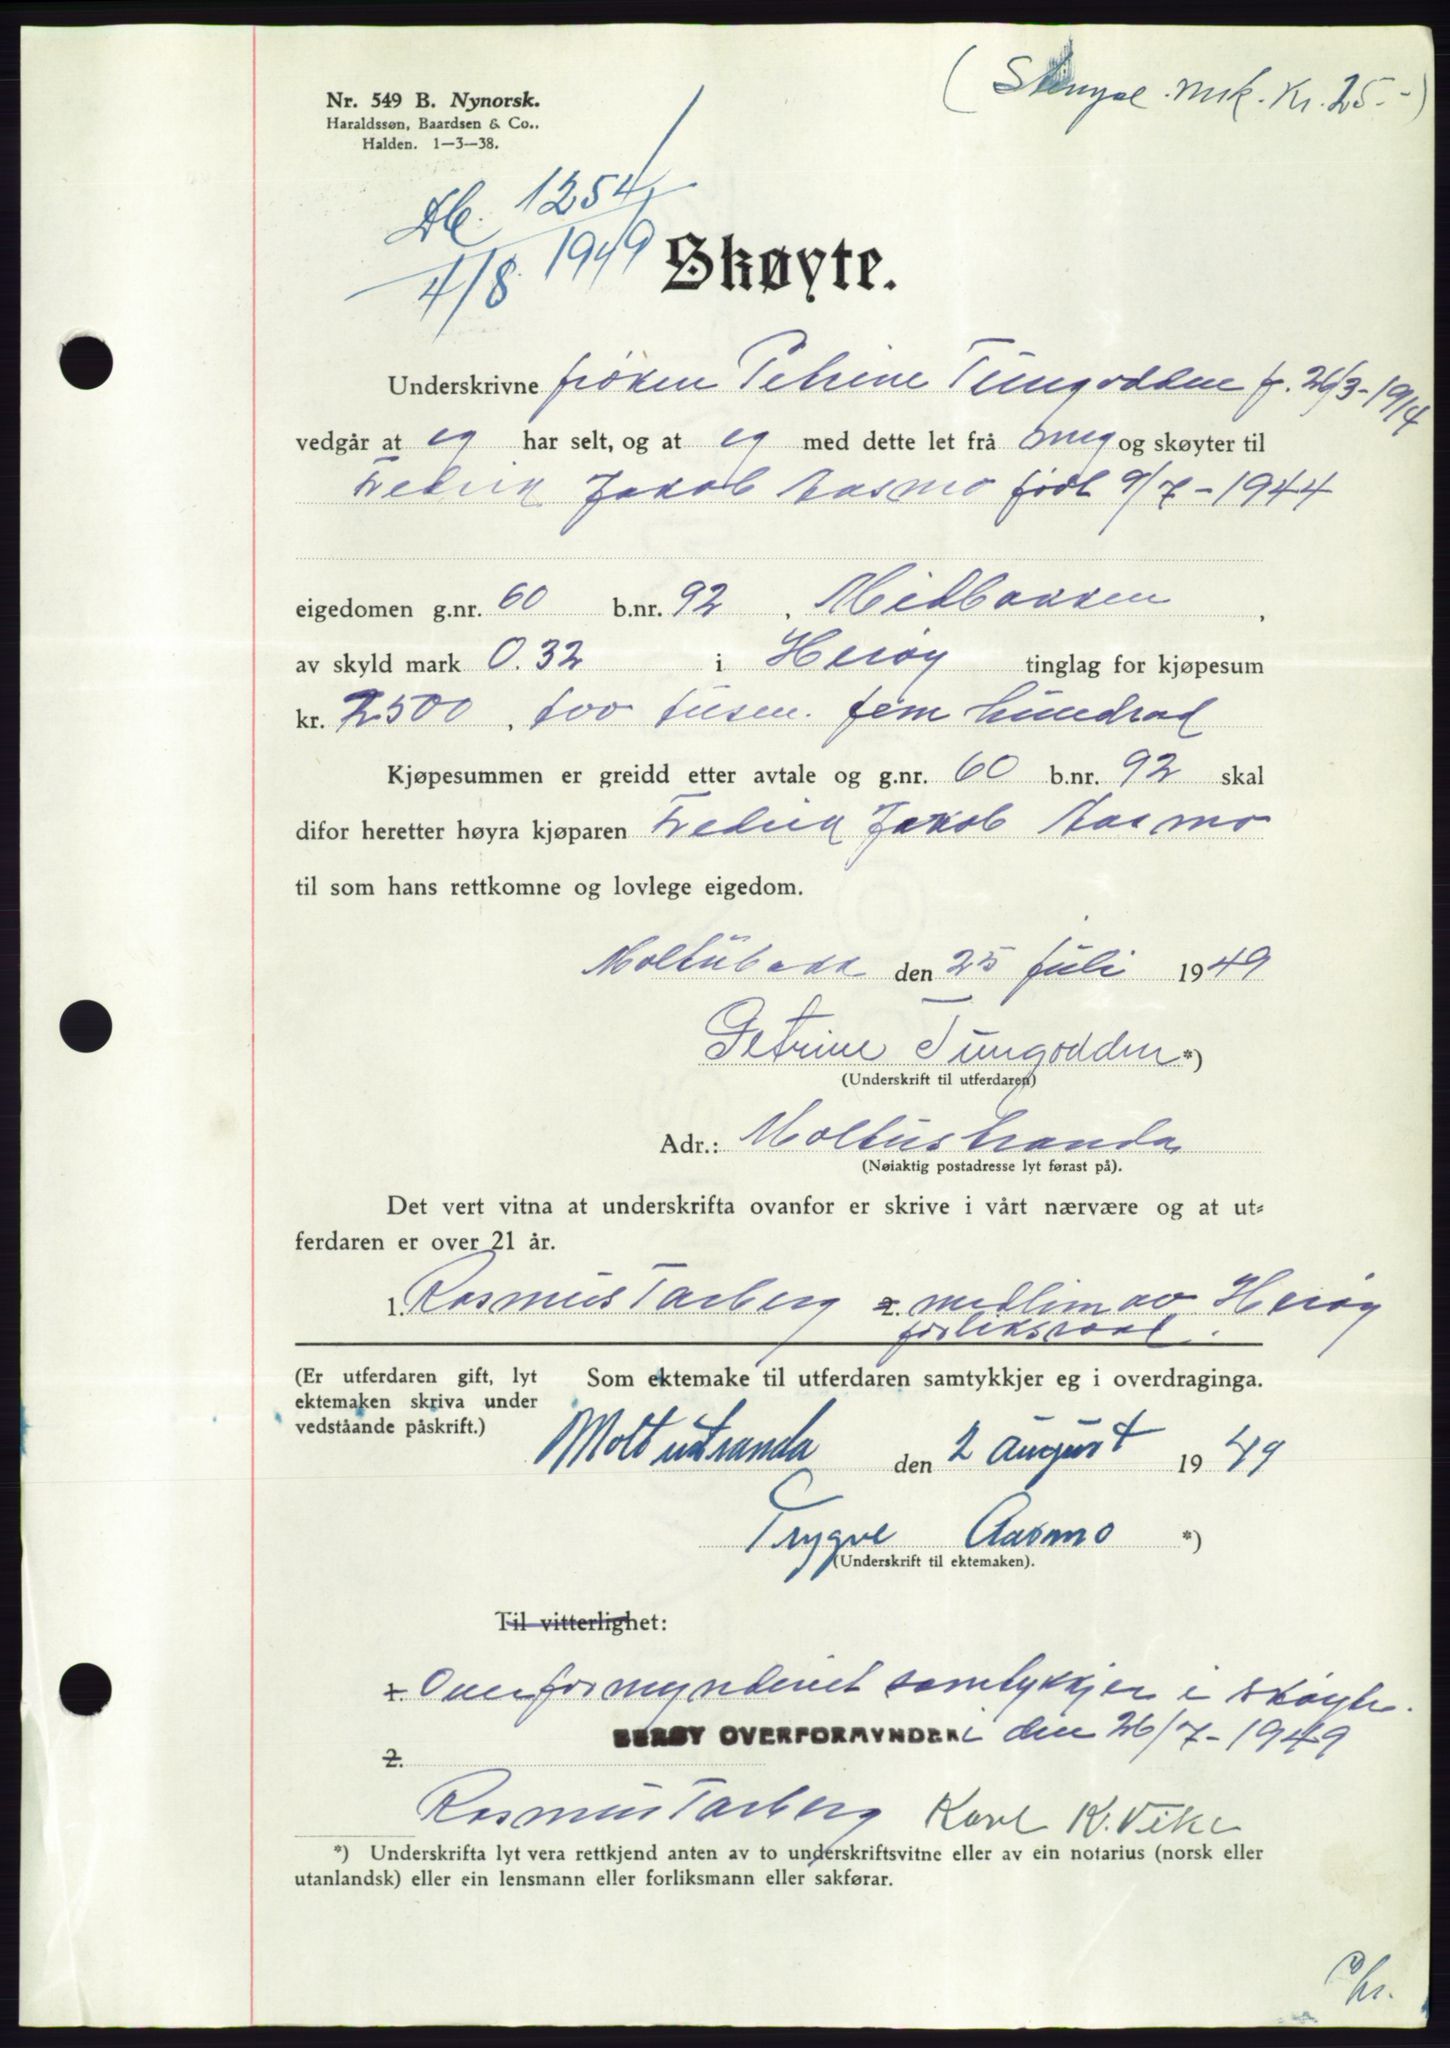 (Stempel.mrk. Kr. 25.-)
Nr. 549 B. Nynorsk.
Haraldssøn, Baardsen & Co..
Halden. 1—3—38.
Db. 1254/1949
4/8
Skøyte.
Underskrivne frøken Petrine Tungodden f. 26/3-1914
vedgår at eg har selt, og at eg med dette let frå meg og skøyter til
Fedrik Jakob Aasmo født 9/7-1944
eigedomen g.nr. 60 b.nr. 92, Midbakken,
av skyld mark 0.32 i Herøy tinglag for kjøpesum
kr. 2500, too tusen. fem hundrad
Kjøpesummen er greidd etter avtale og g.nr. 60 b.nr. 92 skal
difor heretter høyra kjøparen Fedrik Jakob Aasmo
til som hans rettkomne og lovlege eigedom.
Moltubakk den 25 juli 1949
Petrine Tungodden *)
(Underskrift til utferdaren)
Adr.: Moltustranda
(Nøiaktig postadresse lyt førast på).
Det vert vitna at underskrifta ovanfor er skrive i vårt nærvære og at ut-
ferdaren er over 21 år.
1. Rasmus Tarberg 2. medlim av Herøy
forliksraad.
(Er utferdaren gift, lyt
ektemaken skriva under
vedståande påskrift.)
Som ektemake til utferdaren samtykkjer eg i overdraginga.
Moltustranda den 2 august 1949
Trygve Aasmo *)
(Underskrift til ektemaken).
Til vitterlighet:
1. Overformynderiet samtykkjer i skøyte.
HERØY OVERFORMYNDERi den 26/7-1949
2.
Rasmus Tarberg Karl K. Vike
*) Underskrifta lyt vera rettkjend anten av to underskriftsvitne eller av ein notarius (norsk eller
utanlandsk) eller ein lensmann eller forliksmann eller sakførar.